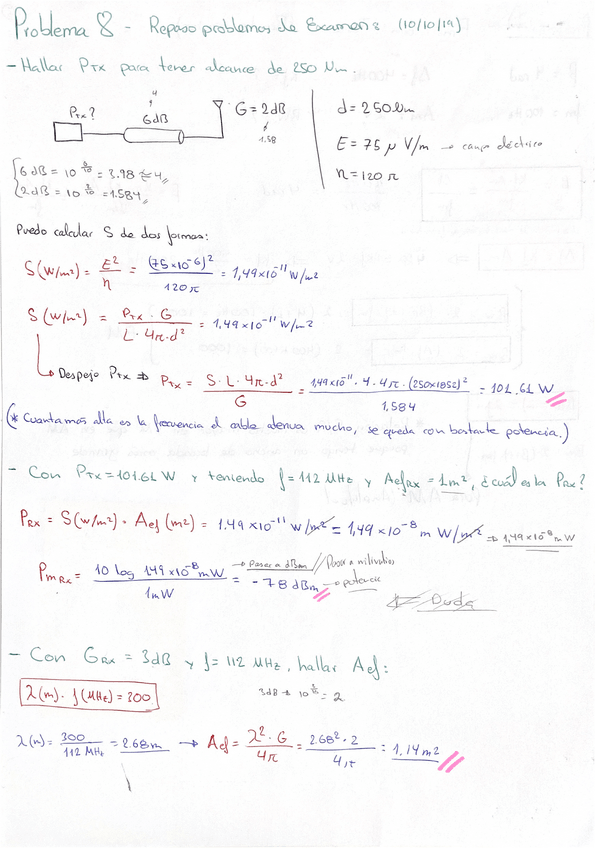 Problema 8 - Repaso problemas de Examen: (10/10/19)
- Hallar PTX para tener alcance de 250 Nm.
4
PTX?
6dB
G = 2dB
1.58
d = 250Nm
E = 75 μ V/m → campo eléctrico
η = 120 π
6 dB = 10^(6/10) = 3.98 ≈ 4
2 dB = 10^(2/10) = 1.584
Puedo calcular S de dos formas:
S(W/m²) = E²/η = (75×10⁻⁶)²/120π = 1,49×10⁻¹¹ W/m²
S(W/m²) = PTX · G / L · 4π·d² = 1,49×10⁻¹¹ W/m²
Despejo PTX ⇒ PTX = S · L · 4π·d² / G = 1,49×10⁻¹¹ · 4 · 4π · (250×1852)² / 1.584 = 101.61 W
(* Cuanta mas alta es la frecuencia el cable atenua mucho, se queda con bastante potencia.)
- Con PTX = 101.61 W y teniendo f = 112 MHz y AefRX = 1m², ¿cuál es la PRX?
PRX = S(W/m²) · Aef (m²) = 1.49×10⁻¹¹ W/m² = 1,49×10⁻⁸ m W/m² ⇒ 1,49×10⁻⁸ m W
PmRX = 10 log 1.49×10⁻⁸ mW / 1mW = -78 dBm
→ Pasar a dBm // Pasar a milivatios
→ potencia
Duda
- Con GRX = 3dB y f = 112 MHz, hallar Aef:
λ(m) · f(MHz) = 300
3dB → 10^(3/10) = 2
λ(m) = 300/112 MHz = 2.68m → Aef = λ² · G / 4π = 2.68² · 2 / 4π = 1.14 m²